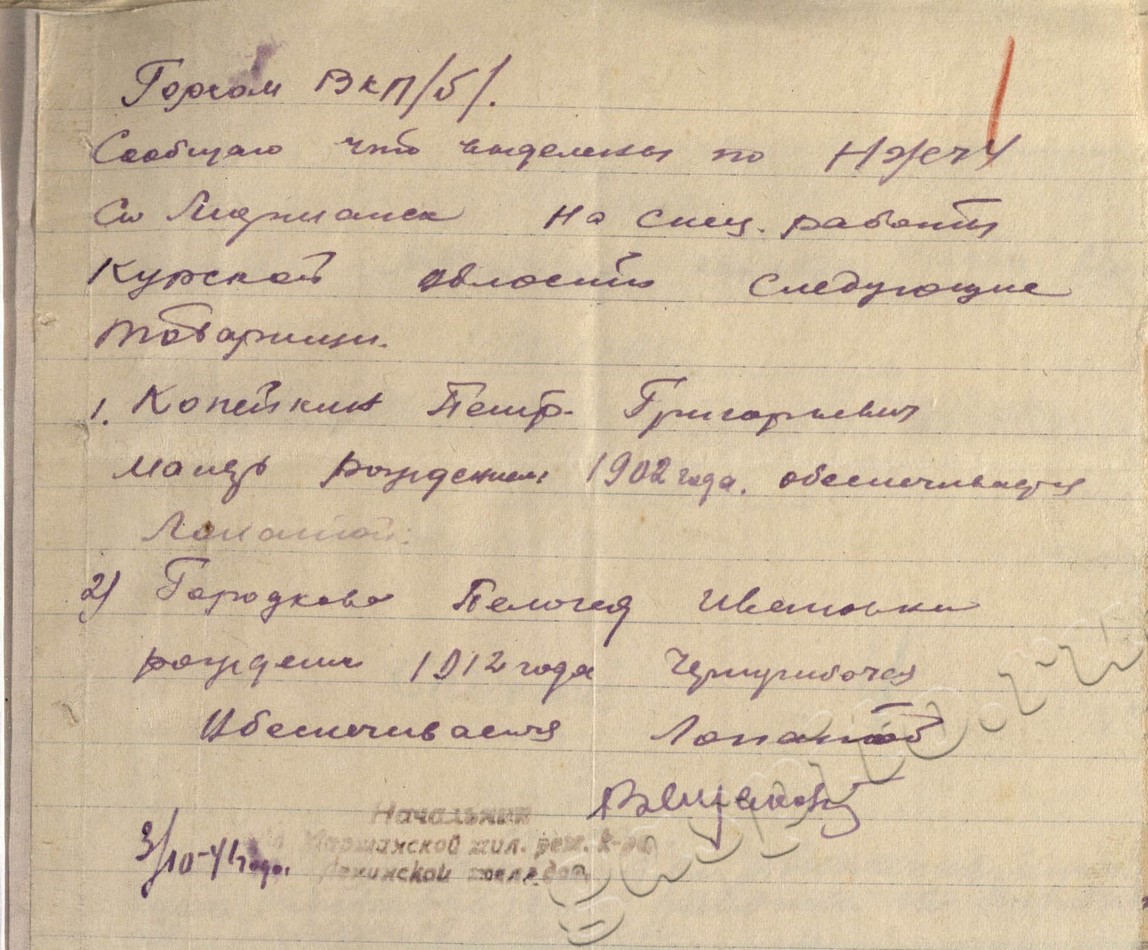 Горком ВКП/б/.
Сообщаю что выделены по НЖЧ 4
Ст Моршанск на спец. работы
Курской области следующие
товарищи.
1. Копейкин Петр Григорьевич
рождения 1902 года. обеспечивается
Лопатой.
2) Городкова Пелогея Ивановна
рождения 1912 года Чернорабочая
Обеспечивается Лопатой
3/10-41 года.
Начальник
Моршанской жил. рем. к-ры
Ленинской жел. дор.